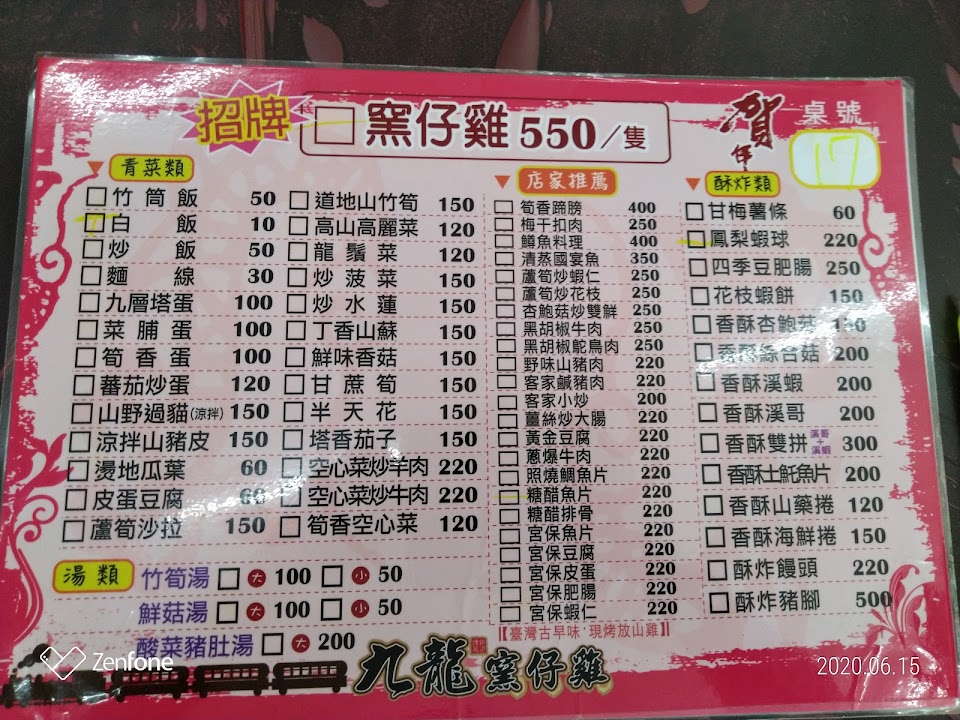 招牌 窯仔雞 550/隻
賀
桌號
17
青菜類
竹筒飯 50
白飯 10
炒飯 50
麵線 30
九層塔蛋 100
菜脯蛋 100
筍香蛋 100
蕃茄炒蛋 120
山野過貓(涼拌) 150
涼拌山豬皮 150
燙地瓜葉 60
皮蛋豆腐 60
蘆筍沙拉 150
道地山竹筍 150
高山高麗菜 120
龍鬚菜 120
炒菠菜 150
炒水蓮 150
丁香山蘇 150
鮮味香菇 150
甘蔗筍 150
半天花 150
塔香茄子 150
空心菜炒羊肉 220
空心菜炒牛肉 220
筍香空心菜 120
店家推薦
筍香蹄膀 400
梅干扣肉 250
鱒魚料理 400
清蒸國宴魚 350
蘆筍炒蝦仁 250
蘆筍炒花枝 250
杏鮑菇炒雙鮮 250
黑胡椒牛肉 250
黑胡椒鴕鳥肉 250
野味山豬肉 220
客家鹹豬肉 220
客家小炒 200
薑絲炒大腸 220
黃金豆腐 220
蔥爆牛肉 220
照燒鯛魚片 220
糖醋魚片 220
糖醋排骨 220
宮保魚片 220
宮保豆腐 220
宮保皮蛋 220
宮保肥腸 220
宮保蝦仁 220
【臺灣古早味·現烤放山雞】
酥炸類
甘梅薯條 60
鳳梨蝦球 220
四季豆肥腸 250
花枝蝦餅 150
香酥杏鮑菇
香酥綜合菇 200
香酥溪蝦 200
香酥溪哥 200
香酥雙拼 溪哥+溪蝦 300
香酥土魠魚片 200
香酥山藥捲 120
香酥海鮮捲 150
酥炸饅頭 220
酥炸豬腳 500
湯類
竹筍湯 大 100 小 50
鮮菇湯 大 100 小 50
酸菜豬肚湯 大 200
九龍窯仔雞
Zenfone
2020.06.15